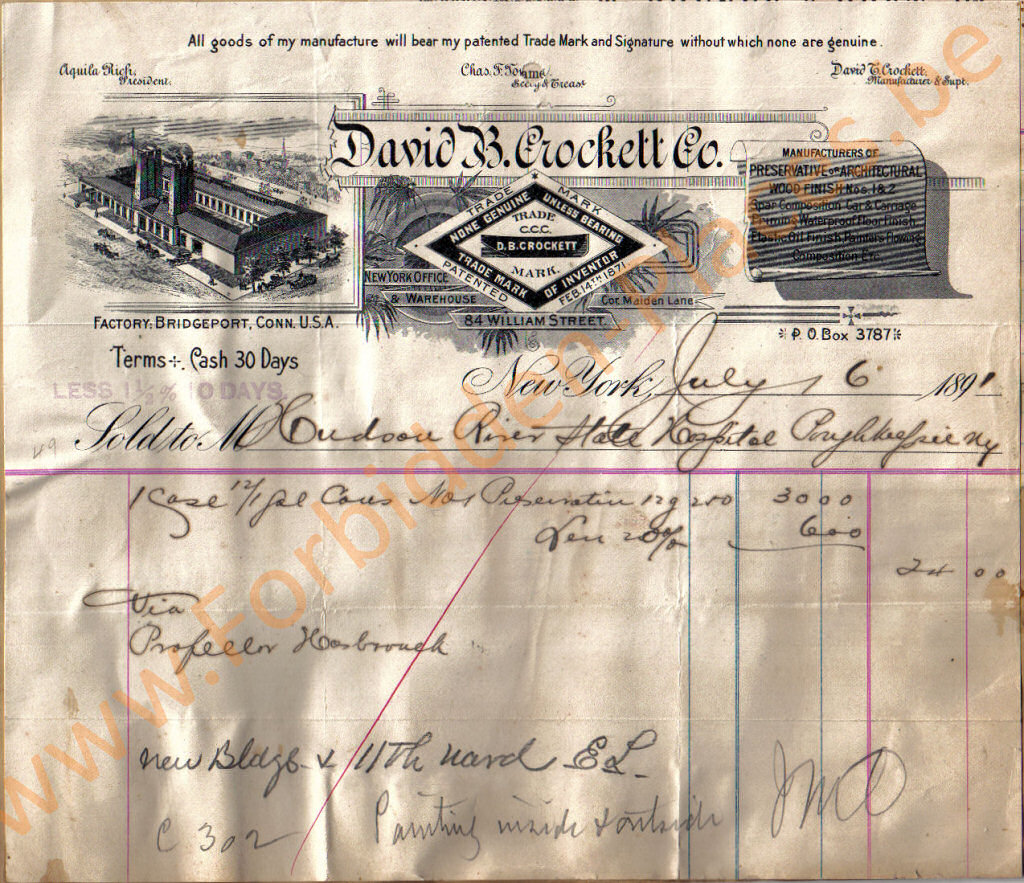 All goods of my manufacture will bear my patented Trade Mark and Signature without which none are genuine.
Aquila Rich,
President.
Chas. F. Towne
Secy & Treas
David T. Crockett,
Manufacturer & Supt.
David B. Crockett Co.
MANUFACTURERS OF
PRESERVATIVE OR ARCHITECTURAL
WOOD FINISH Nos 1 & 2
Spar Composition, Car & Carriage
Waterproof Floor Finish
Composition Etc
TRADE MARK
NONE GENUINE UNLESS BEARING
TRADE
C.C.C.
D.B. CROCKETT
MARK.
TRADE MARK OF INVENTOR
PATENTED FEB. 14TH 1871
NEW YORK OFFICE
& WAREHOUSE
Cor. Maiden Lane
84 WILLIAM STREET.
FACTORY: BRIDGEPORT, CONN. U.S.A.
P. O. Box 3787
Terms Cash 30 Days
LESS 1 1/2 % 10 DAYS.
New York, July 6 1891
Sold to M Hudson River State Hospital Poughkeepsie Ny
49
1 Case 12/1 gal Cans No 1 Preservative 12 g 250 30 00
Less 20% 6 00
24 00
Via
Professor Hasbrouck
new Bldgs & 11th ward E L
C 302 Painting inside & outside
www.Forbidden-places.be